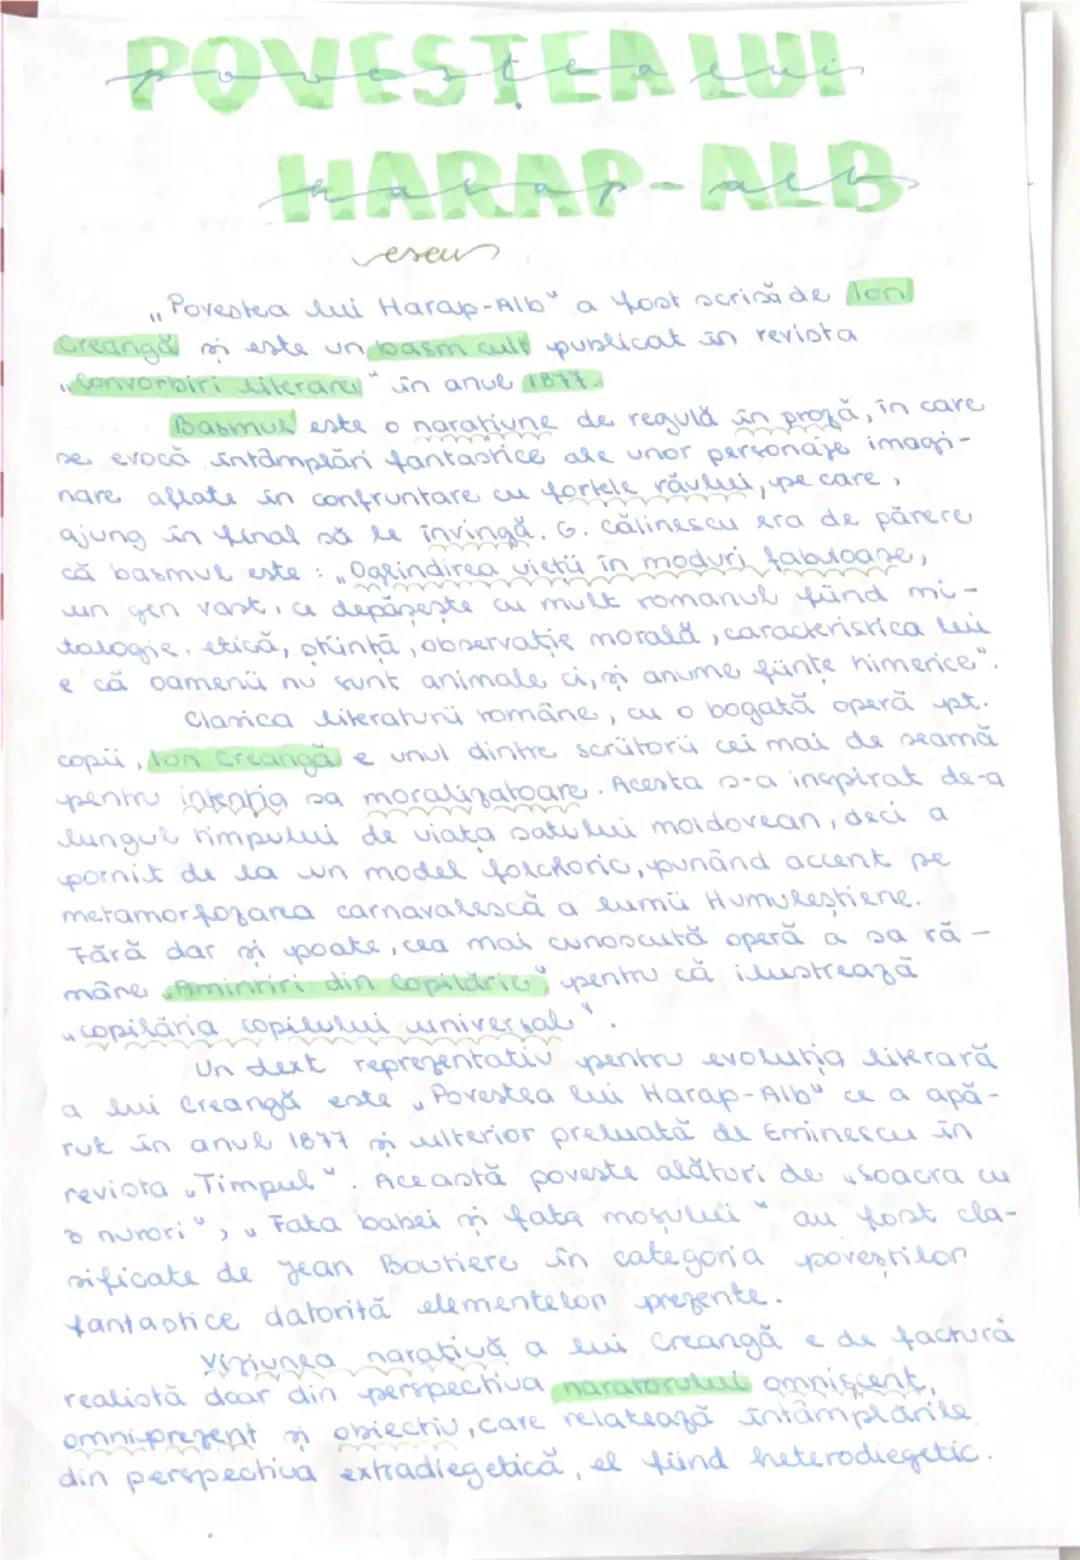 POVESTEA LUI
HARAP-ALB
eseu
„Povestea lui Harap-Alb" a fost scrisă de Ion
Creangă și este un basm cult publicat în revista
„Convorbiri literare" în anul 1877.
Basmul este o narațiune de regulă în proză, în care
se evocă întâmplări fantastice ale unor personaje imagi-
nare aflate în confruntare cu forțele răului, pe care,
ajung în final să le învingă. G. Călinescu era de părere
că basmul este: „Oglindirea vieții în moduri fabuloase,
un gen vast, ce depășește cu mult romanul fiind mi-
tologie, etică, știință, observație morală, caracteristica lui
e că oamenii nu sunt animale ci, și anume ființe himerice".
Clasica literaturii române, cu o bogată operă pt.
copii, Ion Creangă e unul dintre scriitorii cei mai de seamă
pentru intenția sa moralizatoare. Acesta s-a inspirat de-a
lungul timpului de viața satului moldovean, deci a
pornit de la un model folcloric, punând accent pe
metamorfozarea carnavalescă a lumii Humuleștiene.
Fără dar și poate, cea mai cunoscută operă a sa ră-
mâne „Amintiri din Copilărie" pentru că ilustrează
„copilăria copilului universal".
Un text reprezentativ pentru evoluția literară
a lui Creangă este „Povestea lui Harap-Alb" ce a apă-
rut în anul 1877 și ulterior preluată de Eminescu în
revista „Timpul". Această poveste alături de „Soacra cu
3 nurori"; „Fata babei și fata moșului" au fost cla-
sificate de Jean Boutiere în categoria poveștilor
fantastice datorită elementelor prezente.
Viziunea narativă a lui Creangă e de factură
realistă doar din perspectiva naratorului omniscent,
omniprezent și obiectiv, care relatează întâmplările
din perspectiva extradiegetică, el fiind heterodiegetic.